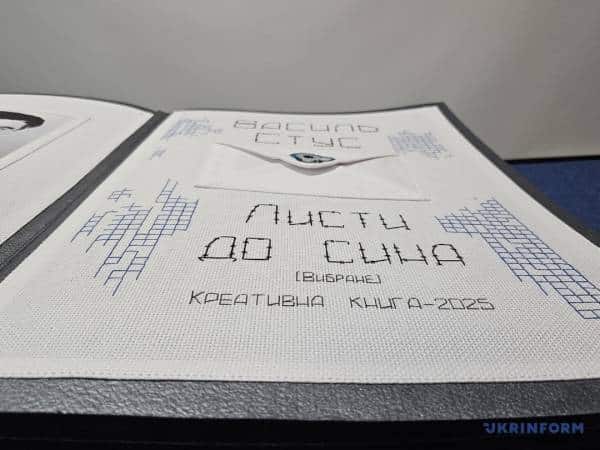 Василь
Стус
Листи
до сина
[Вибране]
Креативна книга-2025
UKRINFORM